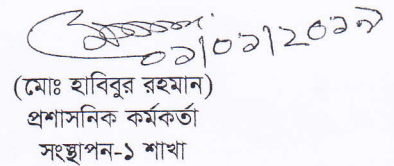 ০১/০১/২০১৭
(মোঃ হাবিবুর রহমান)
প্রশাসনিক কর্মকর্তা
সংস্থাপন-১ শাখা